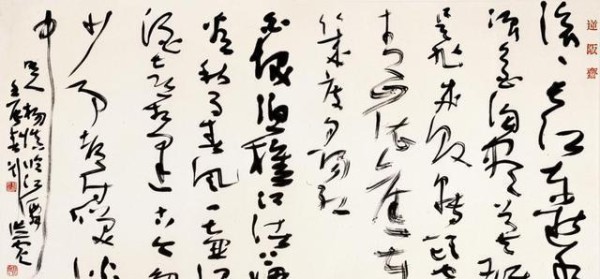 滚滚长江东逝水
浪花淘尽英雄
是非成败转头空
青山依旧在
几度夕阳红
白发渔樵江渚上
惯看秋月春风一壶
浊酒喜相逢古今多
少事都付笑谈
中
杨慎临江